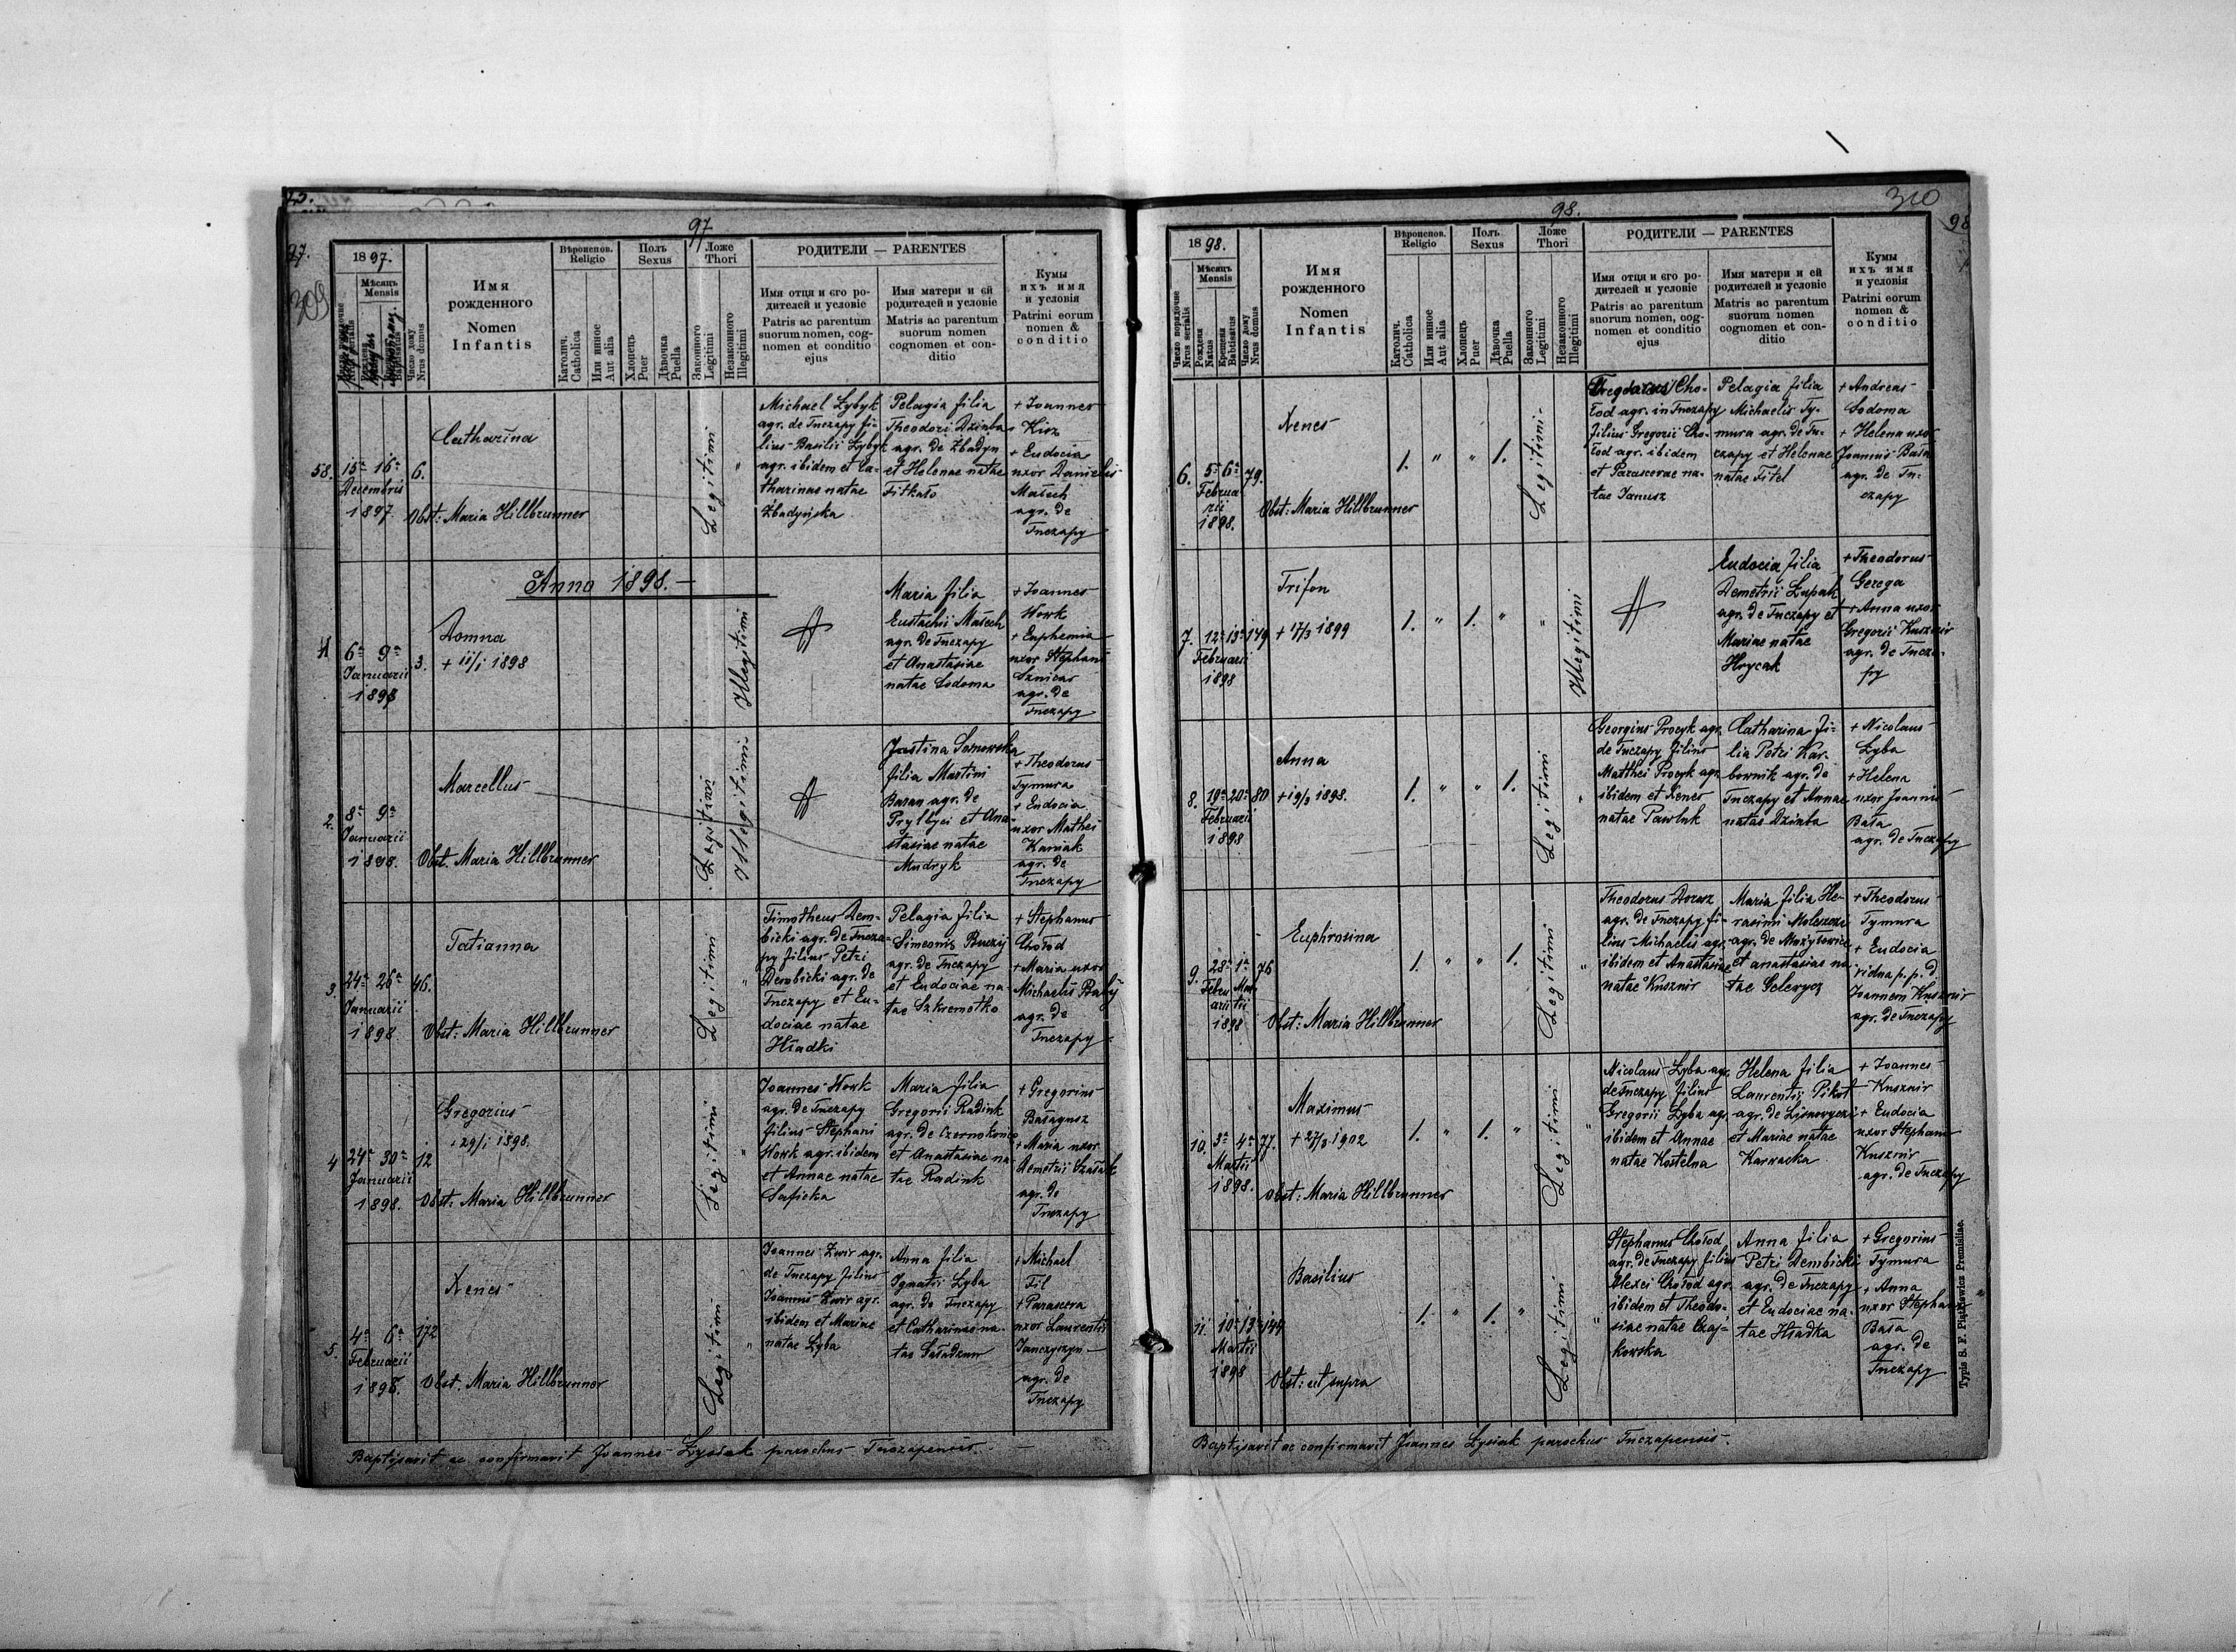 97
97.
309
1897.
Мѣсяць
Mensis
Число дому
Nrus domus
Имя
рожденного
Nomen
Infantis
Вѣроиспов.
Religio
Католич.
Catholica
Или инное
Aut alia
Полъ
Sexus
Хлопець
Puer
Дѣвочка
Puella
Ложе
Thori
Законного
Legitimi
Незаконного
Illegitimi
РОДИТЕЛИ — PARENTES
Имя отця и єго ро-
дителей и условіе
Patris ac parentum
suorum nomen, cog-
nomen et conditio
ejus
Имя матери и ей
родителей и условіе
Matris ac parentum
suorum nomen
cognomen et con-
ditio
Кумы
ихъ имя
и условія
Patrini eorum
nomen &
conditio
58.
15a 16a
Decembris
1897.
6.
Catharina
Obst: Maria Hillbrunner
Legitimi
"
Michael Łybyk
agr. de Tuczapy fi-
lius Basilii Łybyk
agr. ibidem et Ca-
tharinae natae
Zbadyńska
Pelagia filia
Theodori Dziuba
agr. de Zbadyn
et Helenae natae
Fitkało
+ Joannes
Kisz
+ Eudocia
uxor Danielis
Małech
agr. de
Tuczapy
Anno 1898.—
1
6a 9a
Januarii
1898
3.
Domna
+ 11/1 1898
Illegitimi
Maria filia
Eustachii Małech
agr. de Tuczapy
et Anastasiae
natae Sodoma
+ Joannes
Wowk
+ Euphemia
uxor Stephani
Sznicar
agr. de
Tuczapy
2.
8a 9a
Januarii
1898.
Marcellus
Obst. Maria Hillbrunner
Legitimi
Illegitimi
Justina Sanowska
filia Martini
Baran agr. de
Pryłbyci et Ana-
stasiae natae
Mudryk
+ Theodorus
Tymura
+ Eudocia
uxor Mathei
Kaniak
agr. de
Tuczapy
3.
24a 26a
Januarii
1898.
46.
Tatianna
Obst: Maria Hillbrunner
Legitimi
"
Timotheus Dem-
bicki agr. de Tucza-
py filius Petri
Dembicki agr. de
Tuczapy et Eu-
dociae natae
Hładki
Pelagia filia
Simeonis Buczij
agr. de Tuczapy
et Eudociae na-
tae Szkremetko
+ Stephanus
Chołod
+ Maria uxor
Michaelis Bałij
agr. de
Tuczapy
4
24a 30a
Januarii
1898.
12
Gregorius
+ 29/1 1898.
Obst: Maria Hillbrunner
Legitimi
"
Joannes Wowk
agr. de Tuczapy
filius Stephani
Wowk agr. ibidem
et Annae natae
Saficka
Maria filia
Gregorii Radiuk
agr. de Czernokonce
et Anastasiae na-
tae Radiuk
+ Gregorius
Bałagusz
+ Maria uxor
Demetrii Szałak
agr. de
Tuczapy
5.
4a 6a
Februarii
1898.
172
Xenes
Obst. Maria Hillbrunner
Legitimi
"
Joannes Zwir agr.
de Tuczapy filius
Joannis Zwir agr.
ibidem et Mariae
natae Łyba
Anna filia
Ignatii Łyba
agr. de Tuczapy
et Catharinae na-
tae Saładzun
+ Michael
Fil
+ Parascera
uxor Laurentii
Janczyszyn
agr. de
Tuczapy
Baptisavit ac confirmavit Joannes Łysiak parochus Tuczapensis.
98.
310
98
1898.
Число порядочне
Nrus serialis
Мѣсяць
Mensis
Рожденя
Natus
Крещеня
Babtisatus
Число дому
Nrus domus
Имя
рожденного
Nomen
Infantis
Вѣроиспов.
Religio
Католич.
Catholica
Или инное
Aut alia
Полъ
Sexus
Хлопець
Puer
Дѣвочка
Puella
Ложе
Thori
Законного
Legitimi
Незаконного
Illegitimi
РОДИТЕЛИ — PARENTES
Имя отця и єго ро-
дителей и условіе
Patris ac parentum
suorum nomen, cog-
nomen et conditio
ejus
Имя матери и ей
родителей и условіе
Matris ac parentum
suorum nomen
cognomen et con-
ditio
Кумы
ихъ имя
и условія
Patrini eorum
nomen &
conditio
6.
5a 6a
Februa-
rii
1898.
79.
Xenes
Obst: Maria Hillbrunner
1. " " 1.
Legitimi
Cho-
łod agr. in Tuczapy
filius Gregorii Cho-
łod agr. ibidem
et Parascevae na-
tae Janusz
Pelagia filia
Michaelis Ty-
mura agr. de Tu-
czapy et Helenae
natae Fitel
+ Andreas
Sodoma
+ Helena uxor
Joannis Bała
agr. de Tu-
czapy
7.
12a 13a
Februarii
1898
149
Trifon
+ 17/3 1899
1. " 1. " "
Illegitimi
Eudocia filia
Demetrii Łupak
agr. de Tuczapy et
Mariae natae
Hrycak
+ Theodorus
Gerega
+ Anna uxor
Gregorii Kusznir
agr. de Tucza-
py
8.
19a 20a
Februarii
1898
80
Anna
+ 19/3 1898.
1. " " 1.
Legitimi
"
Georgius Procyk agr.
de Tuczapy filius
Matthei Procyk agr.
ibidem et Xenes
natae Pawluk
Catharina fi-
lia Petri Kar-
bownik agr. de
Tuczapy et Annae
natae Dziuba
+ Nicolaus
Łyba
+ Helena
uxor Joannis
Bała
agr. de Tuczapy
9.
28a 1a
Febru- Mar-
arii tii
1898
76
Euphrosina
Obst: Maria Hillbrunner
1. " " 1.
Legitimi
"
Theodorus Dorosz
agr. de Tuczapy fi-
lius Michaelis agr.
ibidem et Anastasiae
natae Kusznir
Maria filia He-
rasimi Moleszczi
agr. de Mużyłowice
et anastasiae na-
tae Gelerycz
+ Theodorus
Tymura
+ Eudocia
vidua p. p. d.
Joannem Kusznir
agr. de Tuczapy
10.
3a 4a
Martii
1898.
77.
Maximus
+ 27/8 1902
Obst: Maria Hillbrunner
1. " 1. "
Legitimi
"
Nicolaus Łyba agr.
de Tuczapy filius
Gregorii Łyba agr.
ibidem et Annae
natae Kostelna
Helena filia
Laurentii Pikot
agr. de Lisnovyczi
et Mariae natae
Karwacka
+ Joannes
Kusznir
+ Eudocia
uxor Stephani
Kusznir
agr. de Tuczapy
11.
10a 13a
Martii
1898
144
Basilius
Obst: ut supra
1. " 1. "
Legitimi
"
Stephanus Chołod
agr. de Tuczapy filius
Alexei Chołod agr.
ibidem et Theodo-
siae natae Czaj-
kowska
Anna filia
Petri Dembicki
agr. de Tuczapy
et Eudociae na-
tae Hładka
+ Gregorius
Tymura
+ Anna
uxor Stephani
Bała
agr. de
Tuczapy
Baptisavit ac confirmavit Joannes Łysiak parochus Tuczapensis.
Typis S. F. Piątkiewicz Premisliae.